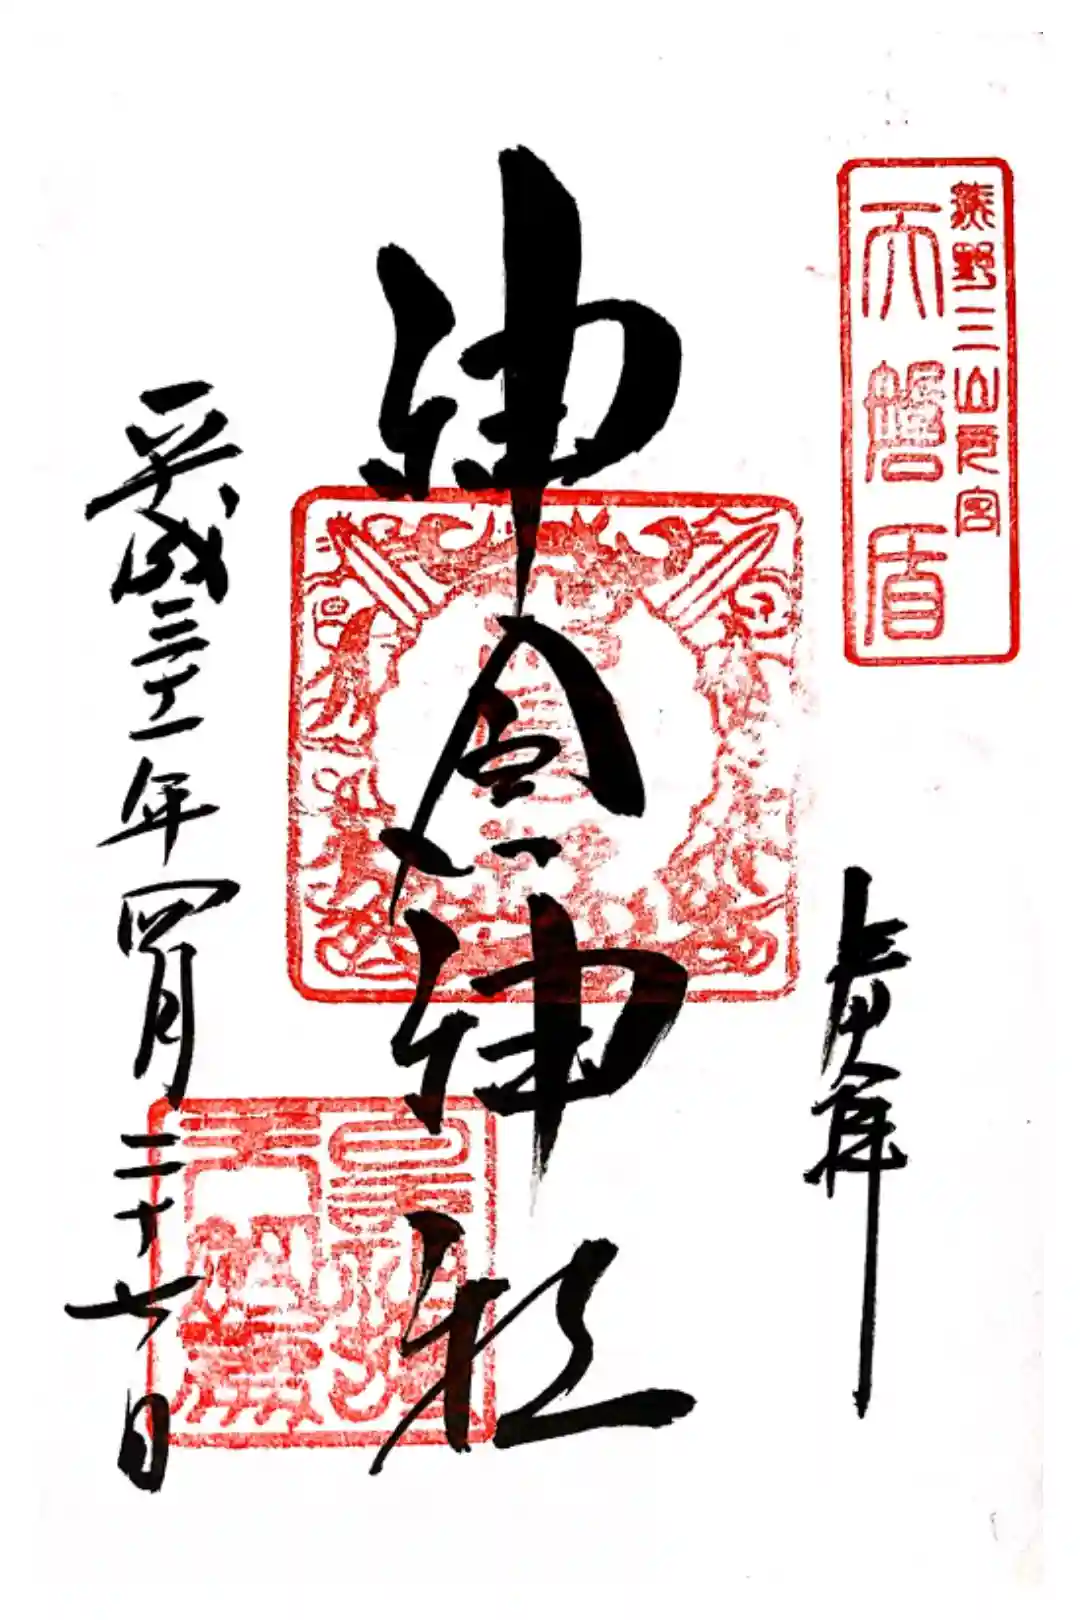 熊野三山元宮
天磐盾
奉拝
神倉神社
平成三十一年四月二十七日